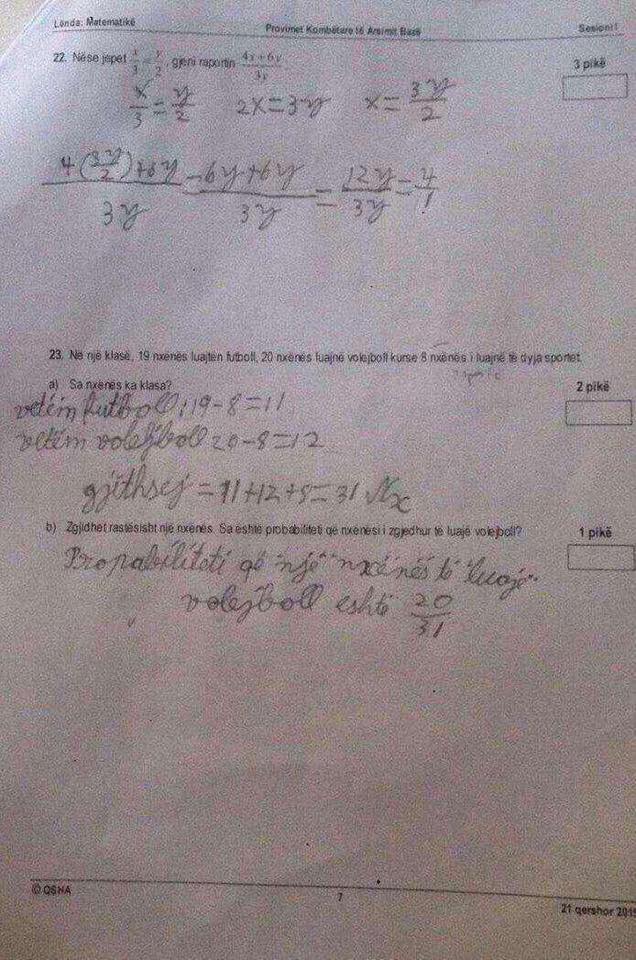 Lënda: Matematikë Provimet Kombëtare të Arsimit Bazë Sesioni I
22. Nëse jepet x/3 = y/2, gjeni raportin (4x+6y)/3y 3 pikë
x/3 = y/2 2x=3y x= 3y/2
(4(3y/2)+6y)/3y = (6y+6y)/3y = 12y/3y = 4/1
23. Në një klasë, 19 nxënës luajtën futboll, 20 nxënës luajnë volejboll kurse 8 nxënës i luajnë të dyja sportet.
a) Sa nxënës ka klasa? 2 pikë
vetëm futboll: 19-8=11
vetëm volejboll 20-8=12
gjithsej = 11+12+8=31 Nx
b) Zgjidhet rastësisht një nxënës. Sa është probabiliteti që nxënësi i zgjedhur të luajë volejboll? 1 pikë
Propabiliteti që një nxënës të luaje
volejboll eshtë 20/31
© QSHA 7 21 qershor